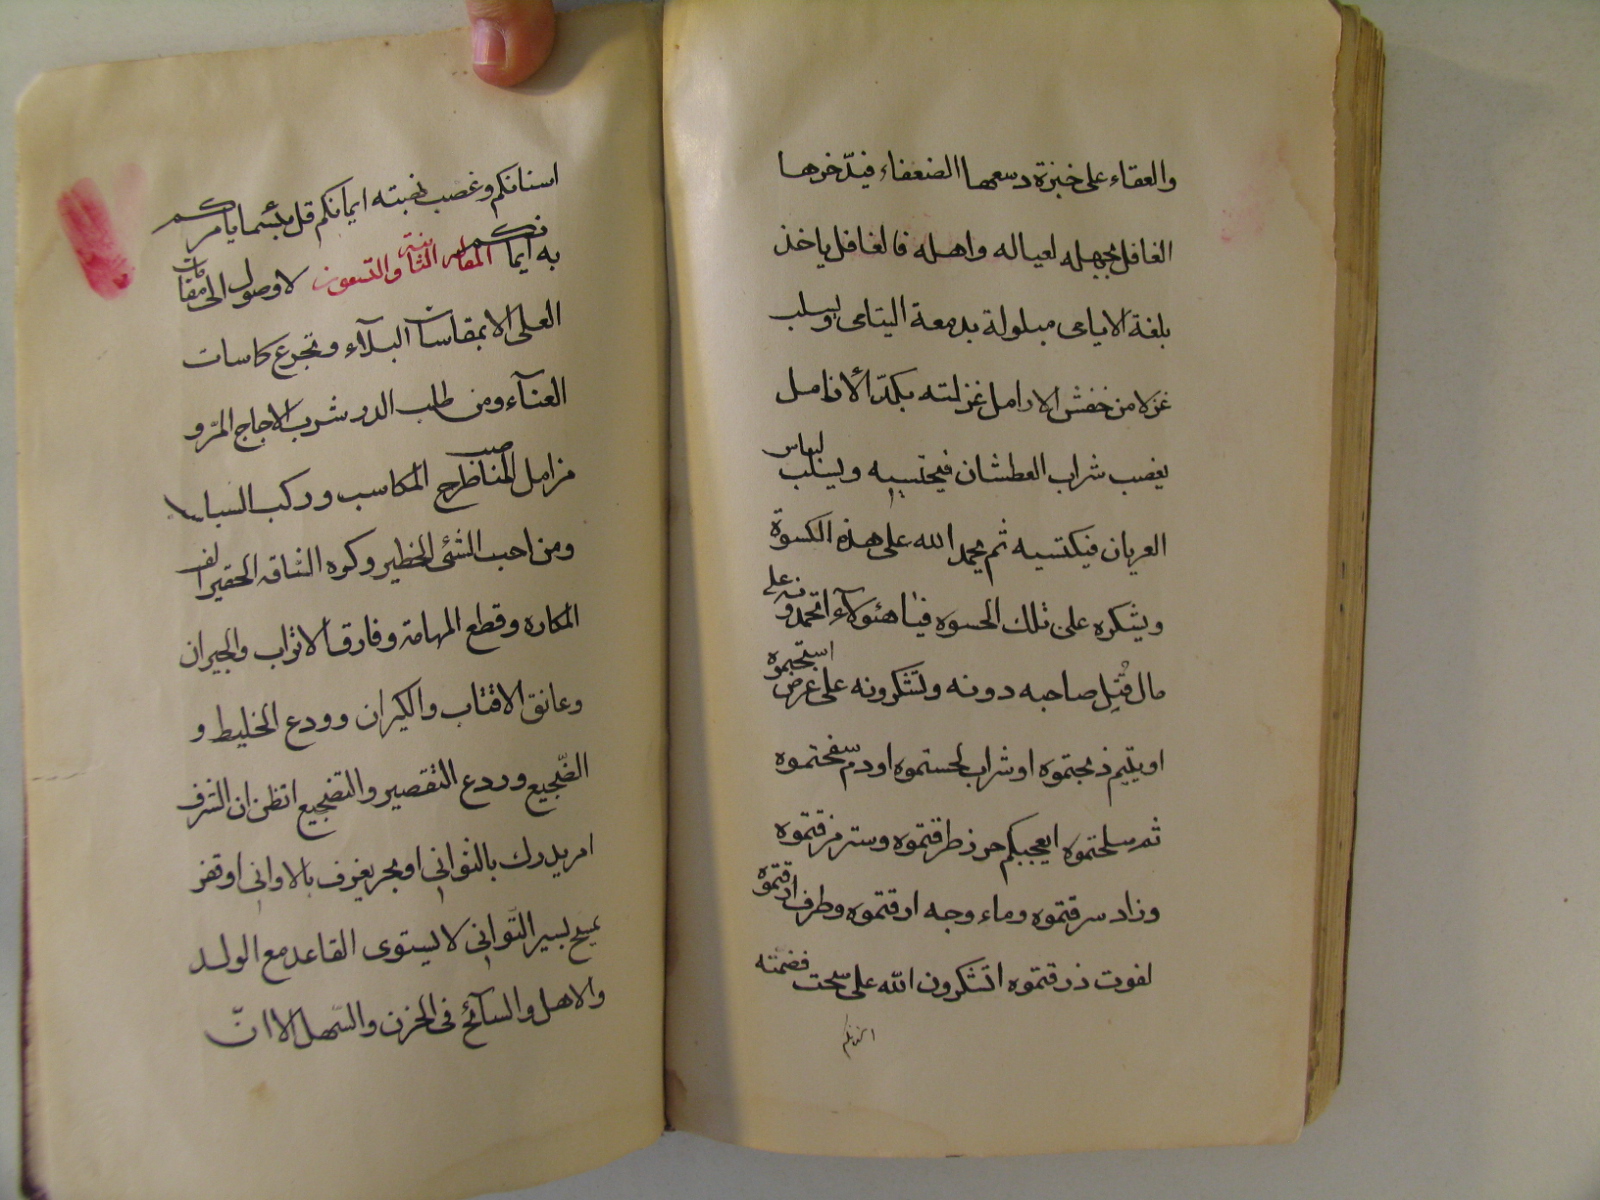 والعقاء على خبزة دسعها الضعفاء فيدّخرها
الغافل بجهله لعياله واهله فالغافل ياخذ
بلغة الايامى مبلولة بدمعة اليتامى ويسلب
غزلا من خفش الارامل غزلته بكدّ الأنامل
يغصب شراب العطشان فيحتسيه ويسلب لباس
العريان فيكتسيه ثم يحمد الله على هذه الكسوة
ويشكره على تلك الحسوه فيا هئولآء اتحمدونه على
مال قتل صاحبه دونه وتشكرونه على عرض استجتموه
او يتيم ذبحتموه او شراب لحستموه او دم سفحتموه
ثم سلحتموه ايعجبكم حرز طرقتموه وستر مزقتموه
وزاد سرقتموه وماء وجه ارقتموه وطرف ارقتموه
لفوت زرقتموه اتشكرون الله على سحت قضمته
اسنانكم
اسنانكم وغصب نهبته ايمانكم قل بئسما يامركم
به ايمانكم المقامة الثامنة والتسعون لا وصول الى مقامات
العلى الا بمقاسات البلآء وتجرع كاسات
العنآء ومن طلب الدر شرب الاجاج المرّ و
من امل المناصب طرح المكاسب وركب السباسب
ومن احب الشئ الخطير وكره الشاقه الحقير الف
المكاره وقطع المهامة وفارق الاتراب والجيران
وعانق الاقتاب والكيران وودع الخليط و
الضّجيع وردع التقصير والتضجيع اتظن ان الشرف
امر يدرك بالثوانى او بحر يغرف بالاوانى او قفر
يميح بسير التّوانى لا يستوى القاعد مع الولد
والاهل والسآئح فى الحزن والسّهل الا انّ